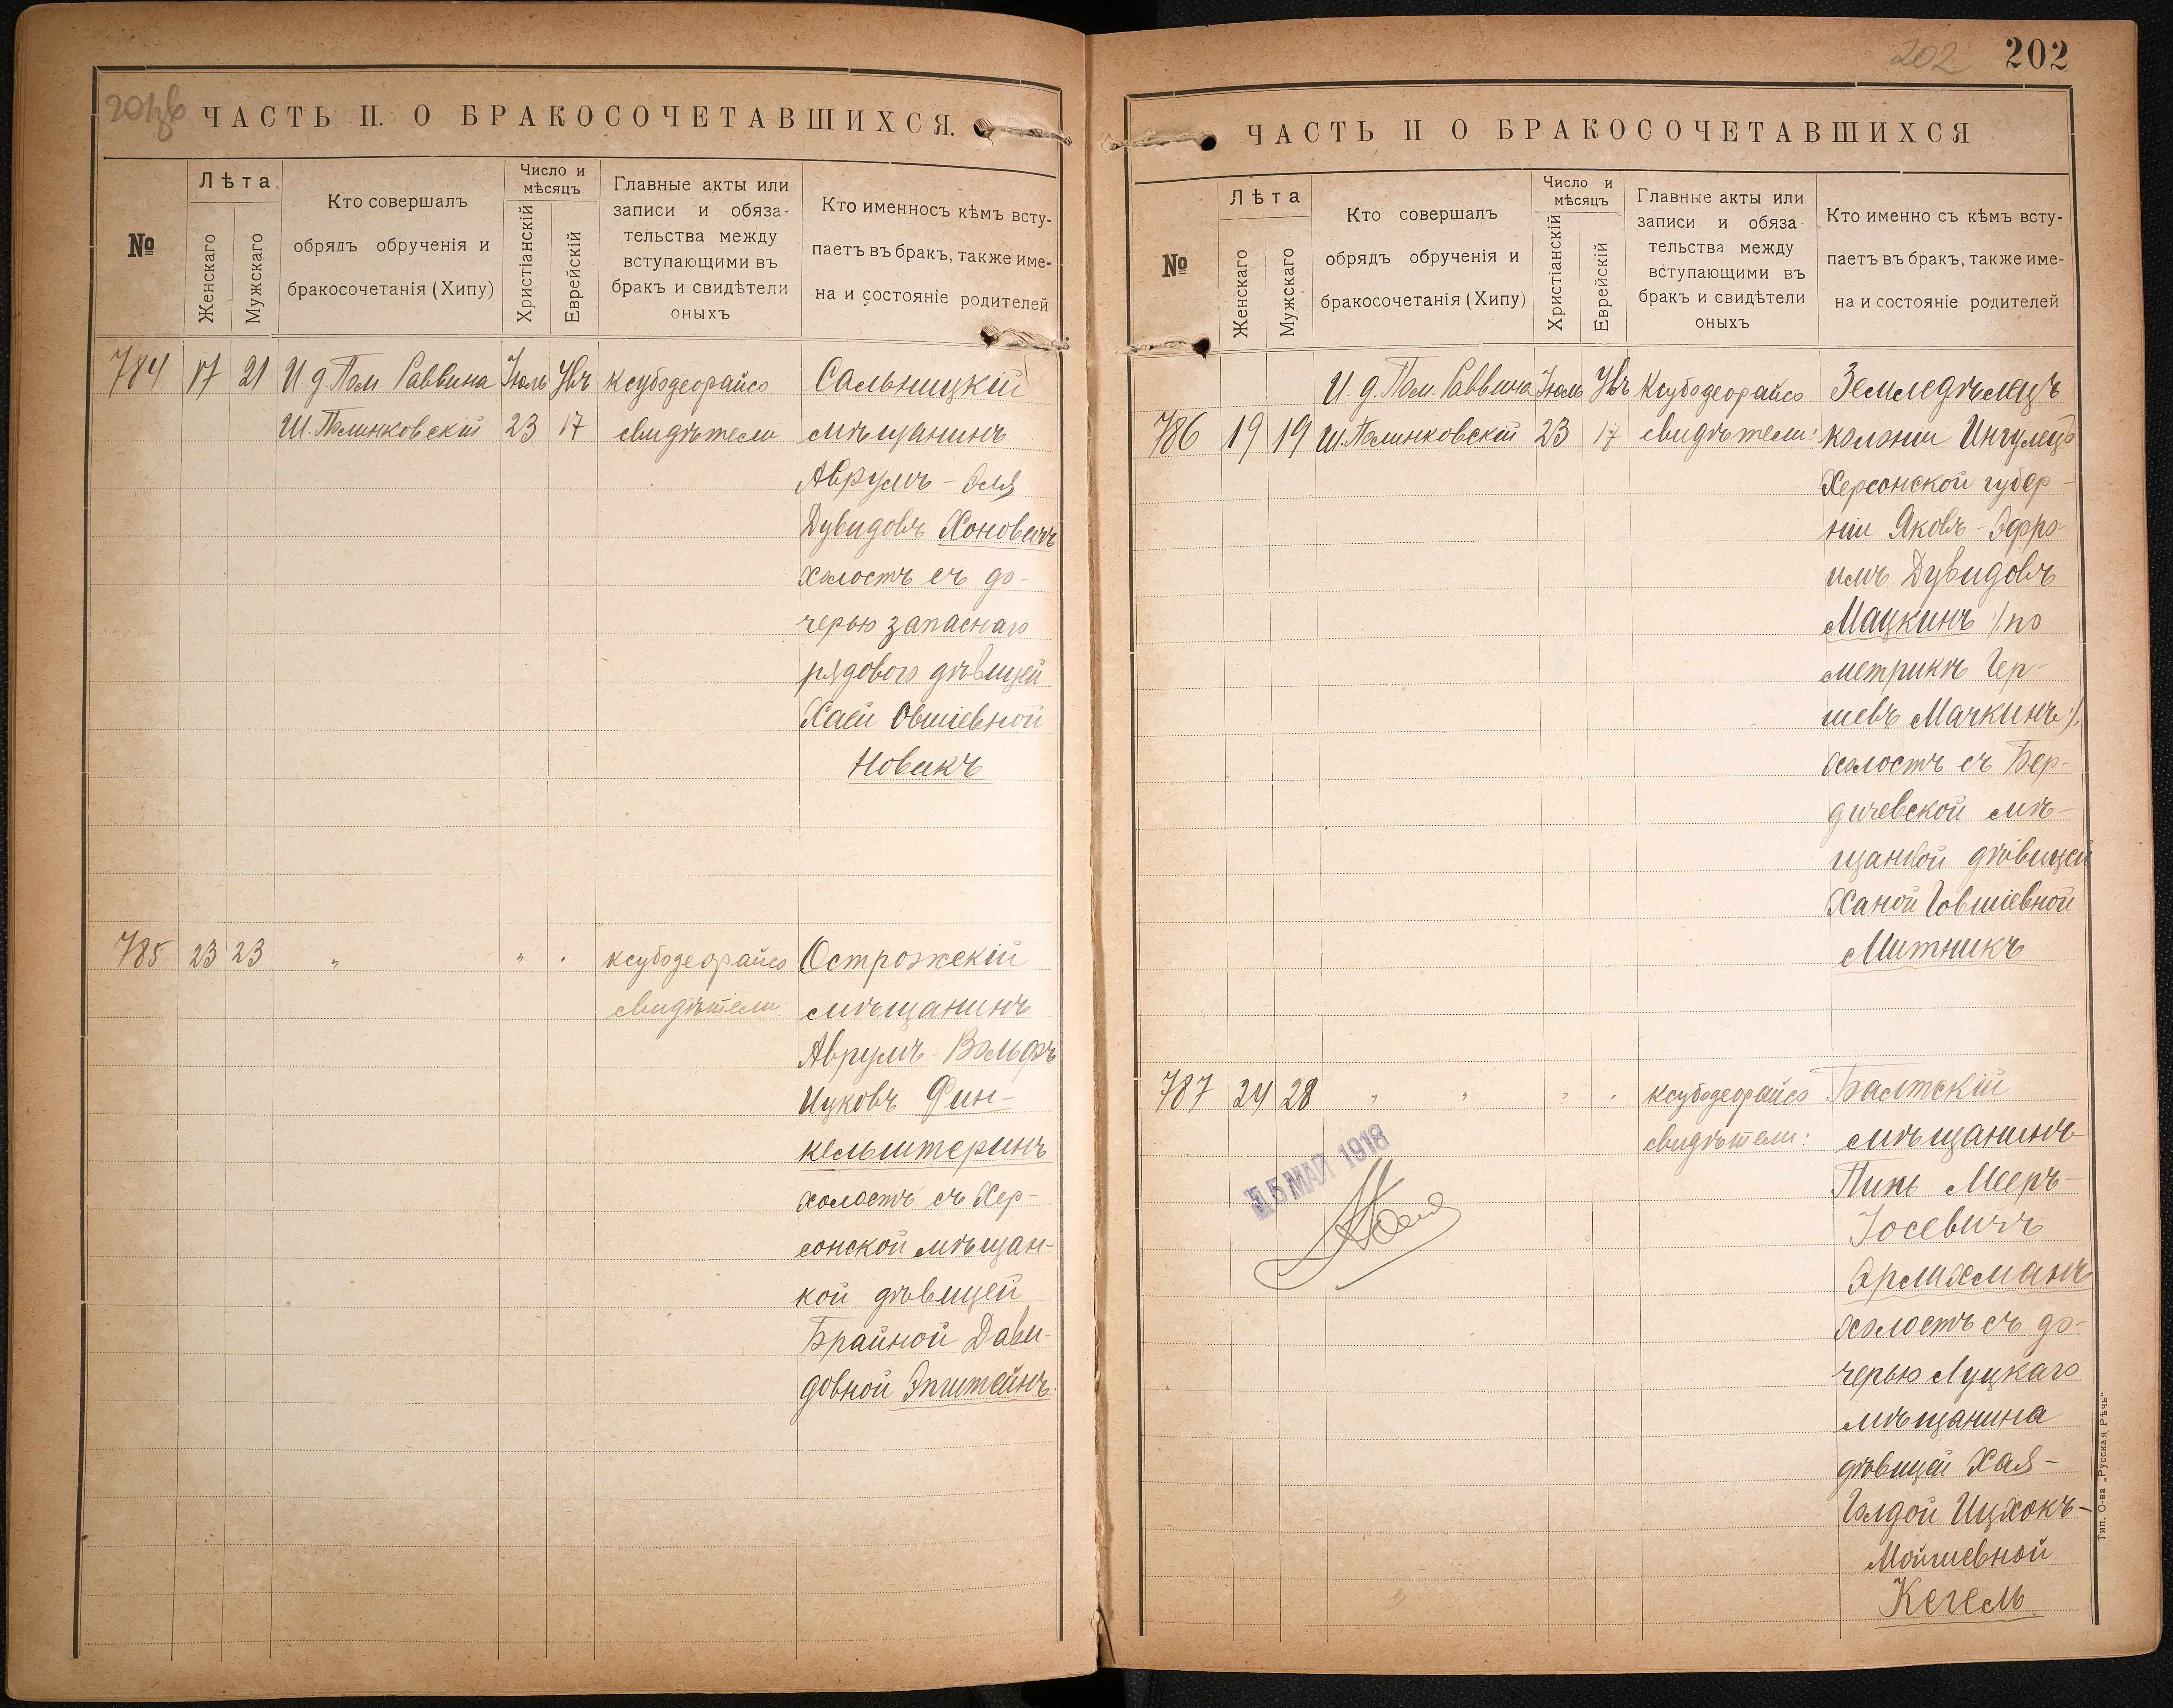 201 об
ЧАСТЬ II. О БРАКОСОЧЕТАВШИХСЯ.
№
Лѣта
Женскаго
Мужскаго
Кто совершалъ
обрядъ обрученія и
бракосочетанія (Хипу)
Число и
мѣсяцъ
Христіанскій
Еврейскій
Главные акты или
записи и обяза-
тельства между
вступающими въ
бракъ и свидѣтели
оныхъ
Кто именносъ кѣмъ всту-
паетъ въ бракъ, также име-
на и состояніе родителей
784 17 21 И д Пом Раввина Іюль Увъ ксубодеорайсо Сальницкій
Ш. Полинковскій 23 17 свидѣтели мѣщанинъ
Аврумъ - Эля
Дувидовъ Хоновичъ
холостъ съ до-
черью запаснаго
рядового дѣвицей
Хаей Овшіевной
Новикъ
785 23 23 " " . ксубодеорайсо Острожскій
свидѣтели мѣщанинъ
Аврумъ - Вольфъ
Ицковъ Фин-
кельштеринъ
холостъ съ Хер-
сонской мѣщан-
кой дѣвицей
Брайной Дави-
довной Эпштейнъ.
202 202
ЧАСТЬ II О БРАКОСОЧЕТАВШИХСЯ
№
Лѣта
Женскаго
Мужскаго
Кто совершалъ
обрядъ обрученія и
бракосочетанія (Хипу)
Число и
мѣсяцъ
Христіанскій
Еврейскій
Главные акты или
записи и обяза
тельства между
вступающими въ
бракъ и свидѣтели
оныхъ
Кто именно съ кѣмъ всту-
паетъ въ бракъ, также име-
на и состояніе родителей
И. д. Пом. Раввина Іюль Увъ Ксубодеорайсо Земледѣлецъ
786 19 19 Ш. Полинковскій 23 17 свидѣтели: колоніи Ингулецъ
Херсонской губер-
ніи Яковъ - Эфро-
имъ Дувидовъ
Мацкинъ /по
метрикѣ Гер-
шевъ Мачкинъ/.
холостъ съ Бер-
дичевской мѣ-
щанкой дѣвицей
Ханой Говшіевной
Митникъ
787 24 28 " " " . ксубодеорайсо Балтскій
свидѣтели: мѣщанинъ
Пинь Мееръ-
Іосевичъ
Эрлихманъ
холостъ съ до-
черью Луцкаго
мѣщанина
дѣвицей Хая-
Голдой Ицхокъ-
Мойшевной
Кегель
15 МАЙ 1918
Тип. О-ва „Русская Рѣчь"